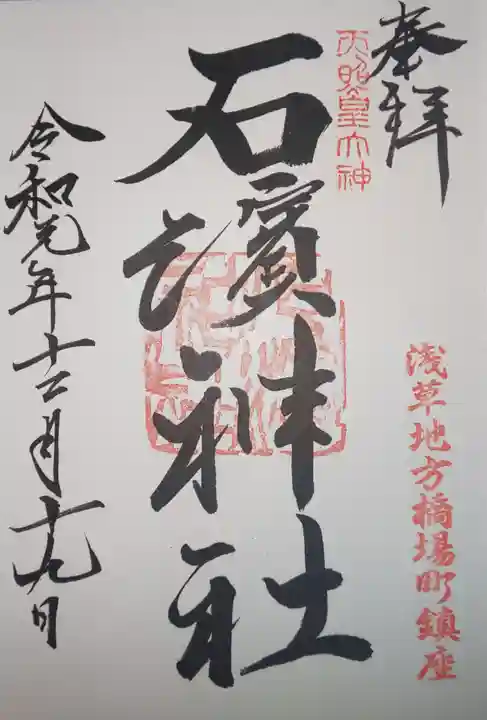 奉拝
天照皇大神
浅草地方橋場町鎮座
石濱神社
令和元年十二月十九日